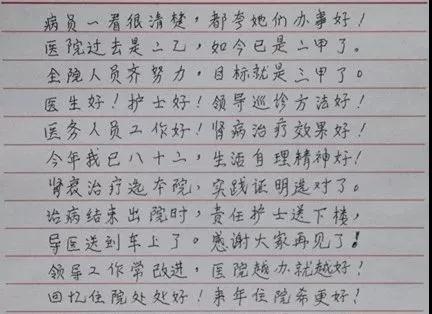 病员一看很清楚，都夸她们办事好！
医院过去是二乙，如今已是二甲了。
全院人员齐努力，目标就是三甲了。
医生好！护士好！领导巡诊方法好！
医务人员工作好！肾病治疗效果好！
今年我已八十二，生活自理精神好！
肾衰治疗选本院，实践证明选对了。
治病结束出院时，责任护士送下楼，
导医送到车上了。感谢大家再见了！
领导工作常改进，医院越办就越好！
回忆住院处处好！来年住院希更好！